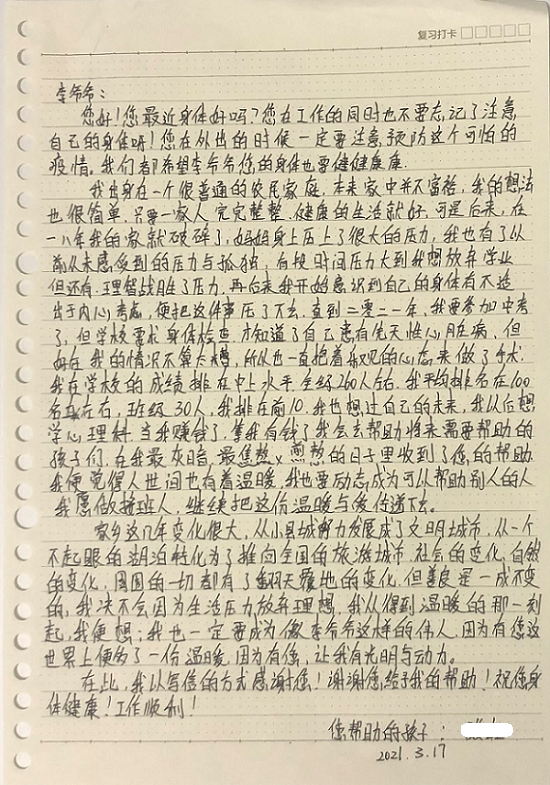 复习打卡
李爷爷：
您好！您最近身体好吗？您在工作的同时也不要忘记了注意
自己的身体哨！您在外出的时候一定要注意预防这个可怕的
疫情。我们都希望李爷爷您的身体也要健健康康。
我出身在一个很普通的农民家庭，本来家中并不富裕，我的想法
也很简单，只要一家人完完整整、健康的生活就好，可是后来，在
一八年我的家就破碎了，妈妈身上历上了很大的压力，我也有了从
前从未感受到的压力与孤独，有段时间压力大到我想放弃学业
但还有，理智战胜了压力，再后来我开始意识到自己的身体有不适
出于内心考虑，便把这件事压了下去，直到二零二一年，我要参加中考
了，但学校要求身体检查，才知道了自己患有先天性心脏病，但
好在我的情况不算太糟，所以也一直抱着乐观的心态，来做了手术
我在学校的成绩排在中上水平全级260人左右，我平均排名在100
名左右，班级30人，我排在前10，我也想过自己的未来，我以后想
学心理科，当我赚钱了，等我有钱了我会去帮助将来需要帮助的
孩子们，在我最灰暗，最焦煎熬的日子里收到了您的帮助
我便觉得人世间也有着温暖，我也要励志成为可以帮助别人的人
我愿做接班人，继续把这份温暖与爱传递下去。
家乡这几年变化很大，从小县城努力发展成了文明城市，从一个
不起眼的湖泊转化为了推向全国的旅游城市，社会的变化，自然
的变化，周围的一切都有了翻天覆地的变化，但善良是一成不变
的，我决不会因为生活压力放弃理想，我从得到温暖的那一刻
起，我便想：我也一定要成为像李爷爷这样的伟人，因为有您这
世界上便多了一份温暖，因为有您，让我有光明与动力。
在此，我以写信的方式感谢您！谢谢您给予我的帮助！祝您身
体健康！工作顺利！
您帮助的孩子：
2021.3.17